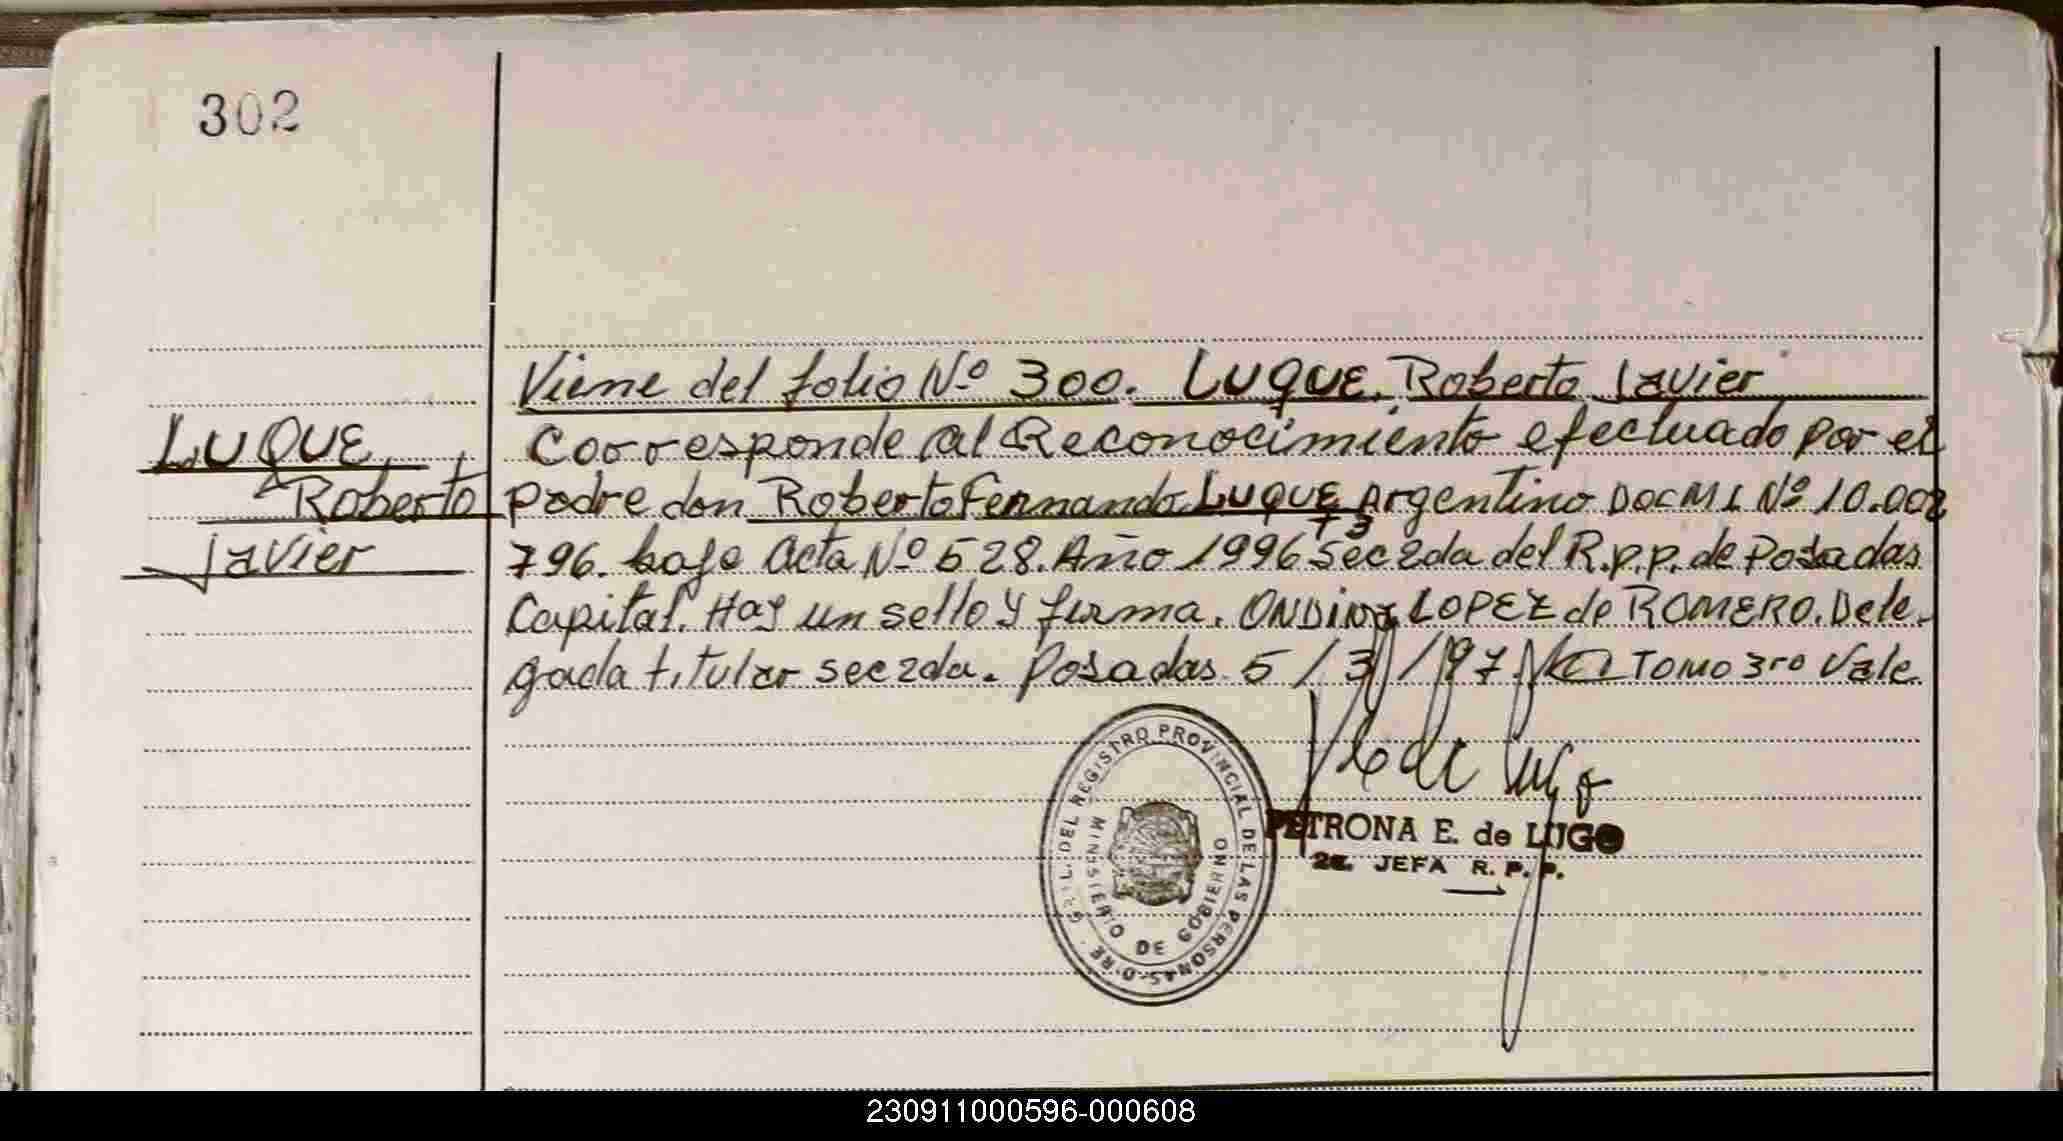 302
Viene del folio Nº 300. LUQUE, Roberto Javier
LUQUE,
Corresponde al Reconocimiento efectuado por el
Roberto
padre don Roberto Fernando LUQUE Argentino DOC M I Nº 10.002
T 3
Javier
796. bajo Acta Nº 528. Año 1996 Sec 2da del R.p.p. de Posadas
Capital. Hay un sello y firma. ONDina LOPEZ de ROMERO. Dele-
gada titular sec 2da. Posadas 5/3/97. Tomo 3ro Vale
REGISTRO PROVINCIAL DE LAS PERSONAS
MINISTERIO DE GOBIERNO
PETRONA E. de LUGO
2a. JEFA R. P. P.
230911000596-000608